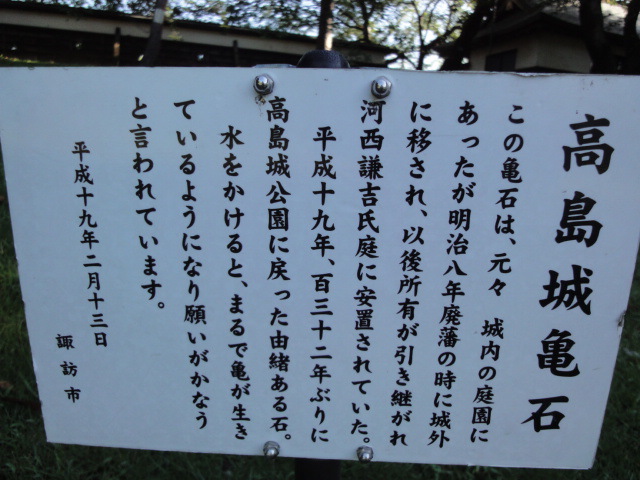 高島城亀石
この亀石は、元々 城内の庭園に
あったが明治八年廃藩の時に城外
に移され、以後所有が引き継がれ
河西謙吉氏庭に安置されていた。
平成十九年、百三十二年ぶりに
高島城公園に戻った由緒ある石。
水をかけると、まるで亀が生き
ているようになり願いがかなう
と言われています。
平成十九年二月十三日
諏訪市